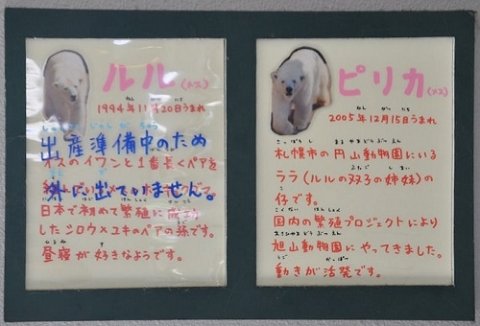 ルル(メス)
1994年11月20日うまれ
出産準備中のため
外に出ていません。
イスのイワンと1番長くペアを
日本で初めて繁殖に成功
したシロウ×ユキのペアの孫です。
昼寝が好きなようです。
ピリカ(メス)
2005年12月15日うまれ
札幌市の円山動物園にいる
ララ(ルルの双子の姉妹)の
仔です。
国内の繁殖プロジェクトにより
旭山動物園にやってきました。
動きが活発です。